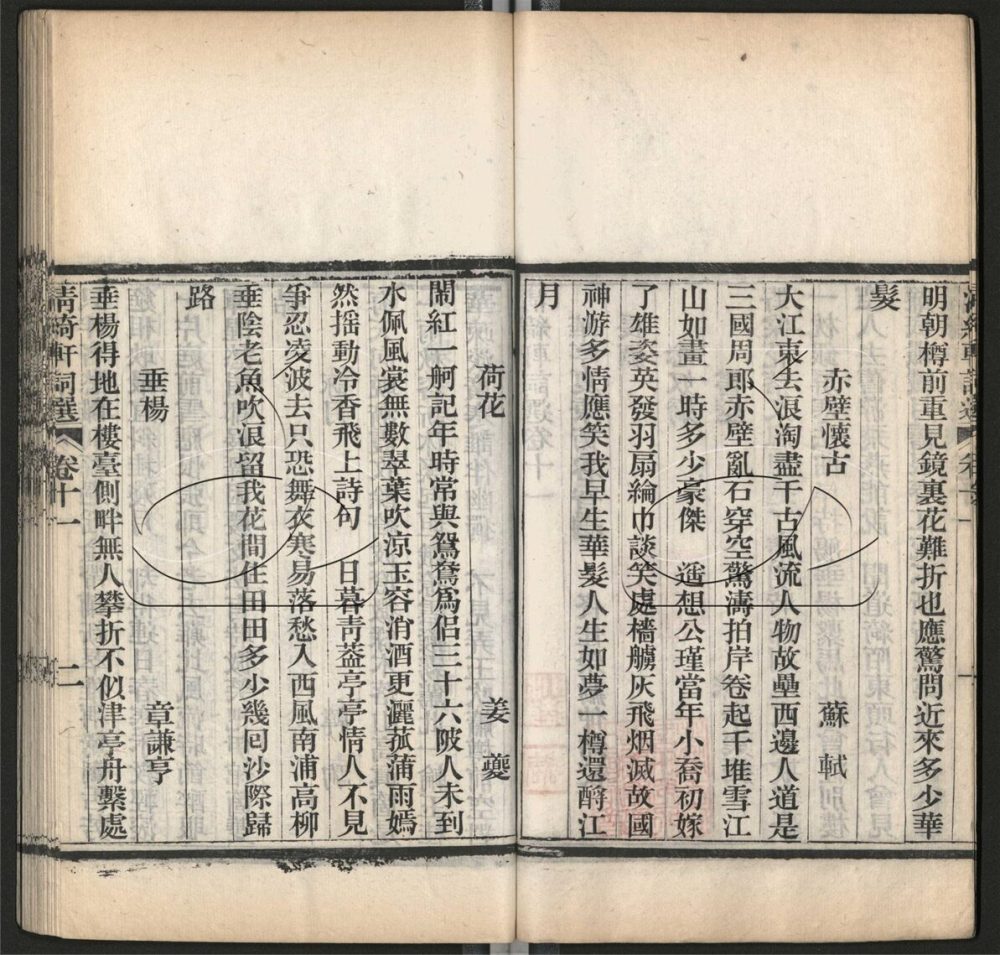 明朝樽前重見鏡裏花難折也應驚問近來多少華
髮
赤壁懷古 蘇軾
大江東去浪淘盡千古風流人物故壘西邊人道是
三國周郎赤壁亂石穿空驚濤拍岸卷起千堆雪江
山如畫一時多少豪傑 遥想公瑾當年小喬初嫁
了雄姿英發羽扇綸巾談笑處檣艣灰飛烟滅故國
神游多情應笑我早生華髮人生如夢一樽還酹江
月
荷花 姜夔
鬧紅一舸記年時常與鴛鴦爲侶三十六陂人未到
水佩風裳無數翠葉吹涼玉容消酒更灑菰蒲雨嫣
然摇動冷香飛上詩句 日暮青葢亭亭情人不見
爭忍凌波去只恐舞衣寒易落愁入西風南浦高柳
垂陰老魚吹浪留我花間住田田多少幾囘沙際歸
路
垂楊 章謙亨
垂楊得地在樓臺側畔無人攀折不似津亭舟繫處
清綺軒詞選 卷十一 二